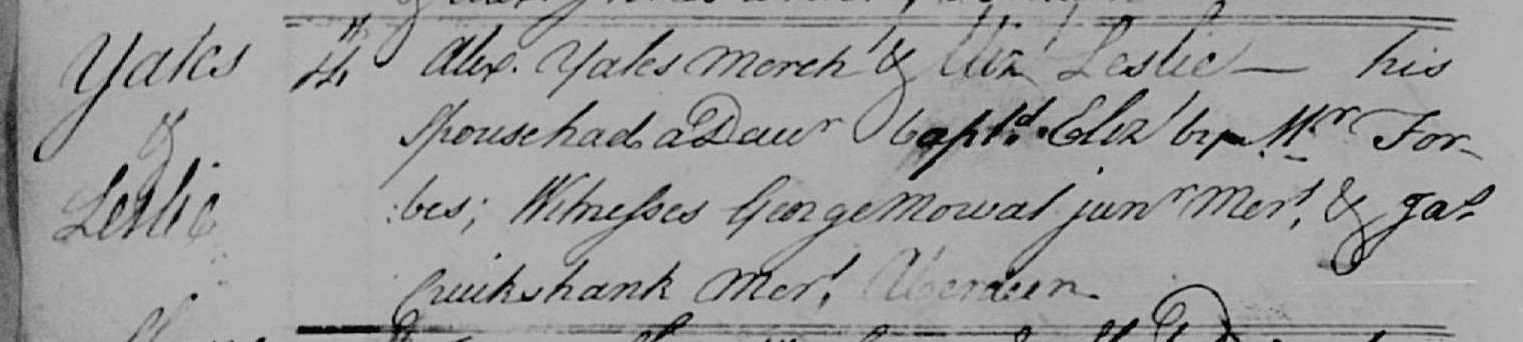 Yates 4th Alexr. Yates Mercht & Eliz Leslie — his
& Spouse had a Dawr bapt.d Eliz by Mr For-
Leslie bes; Witnesses George Mowat junr Mert, & Jas
Cruikshank Mert, Aberdeen